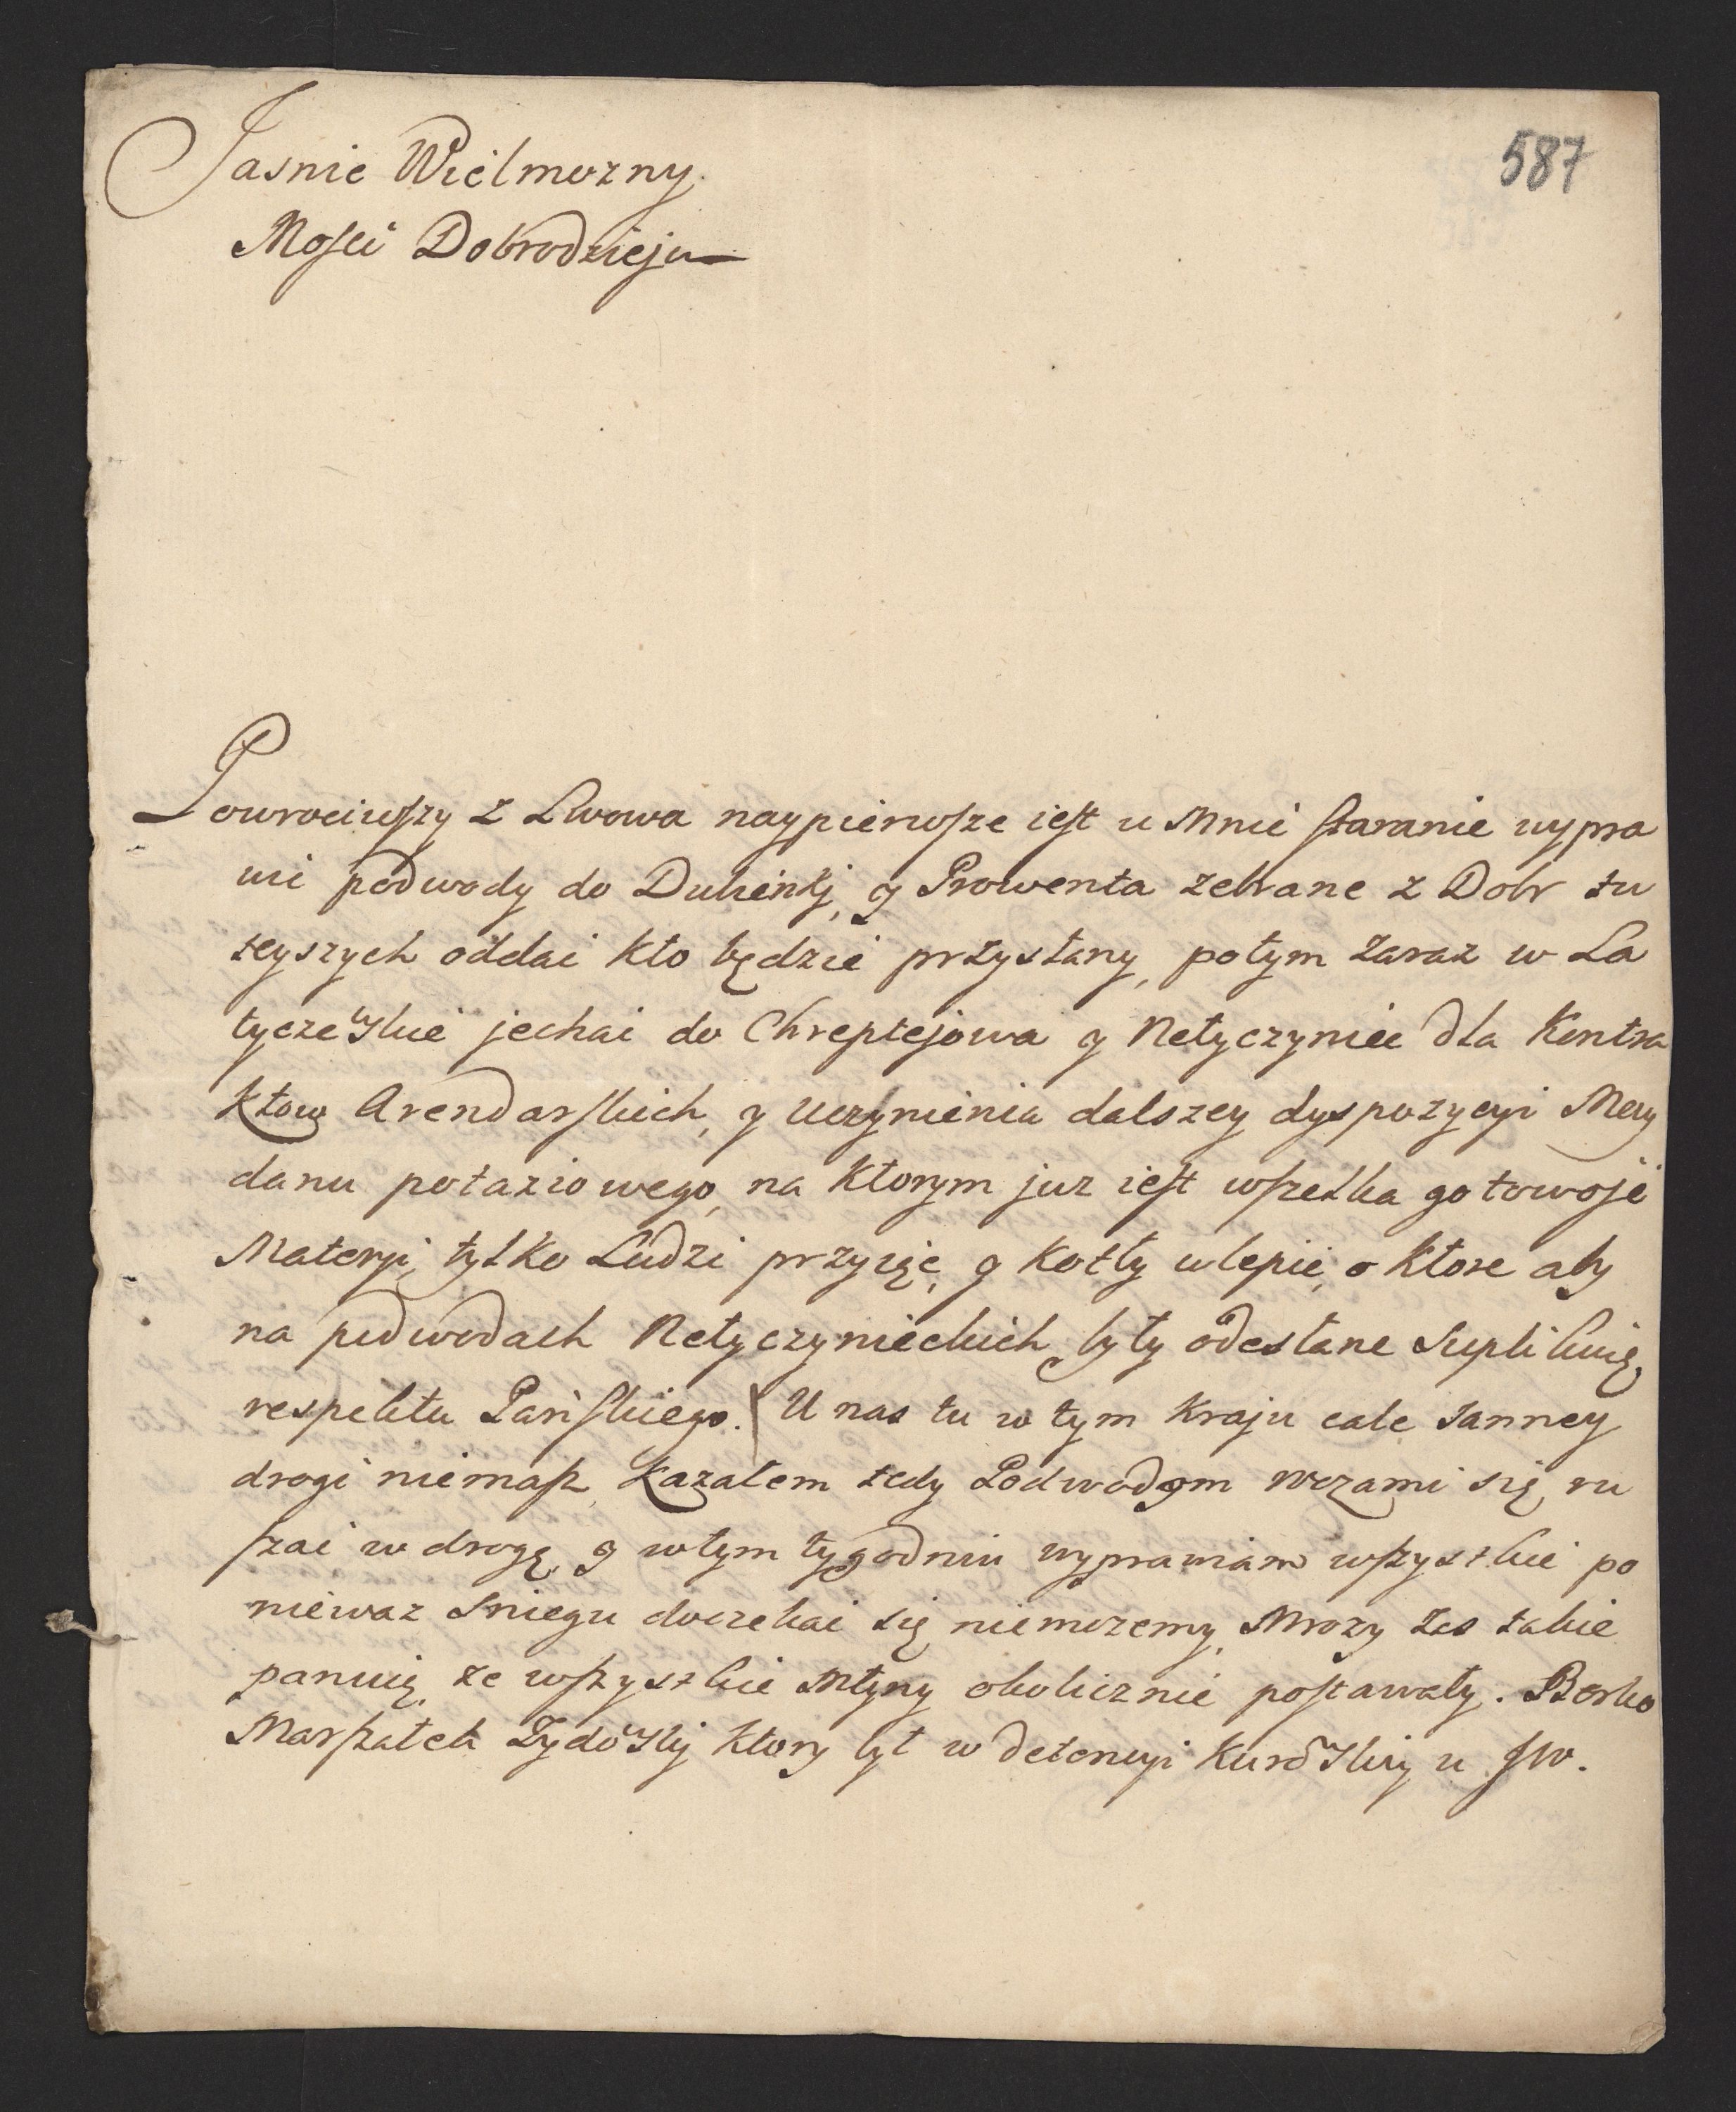 587
Jasnie Wielmozny
Mosci Dobrodzieju
Powrociwszy z Lwowa naypierwsze iest u Mnie staranie wypra
wic podwody do Dubienki, y Prowenta zebrane z Dobr tu
teyszych oddac kto będzie przysłany, potym zaraz w La
tyczewskie jechac do Chreptejowa y Netyczyniec dla Kontra
ktow Arendarskich, y Uczynienia dalszey dyspozycyi May
danu potaziowego, na ktorym juz iest wszelka gotowosć
Materyi, tylko Ludzi przyiąć, y Kotły wlepić, o ktore aby
na podwodach Netyczynieckich były odesłane Suplikuię
respektu Pańskiego. U nas tu w tym Kraju cale sanney
drogi niemasz, kazałem tedy Podwodom wozami się ru
szac w drogę, y w tym tygodniu wyprawiam wszystkie po
niewaz Sniegu doczekac się niemozemy, Mrozy zas takie
panuią, ze wszystkie Młyny okolicznie postawały. Berko
Marszałek Zydowski ktory był w detencyi Kurowskiey u JW.